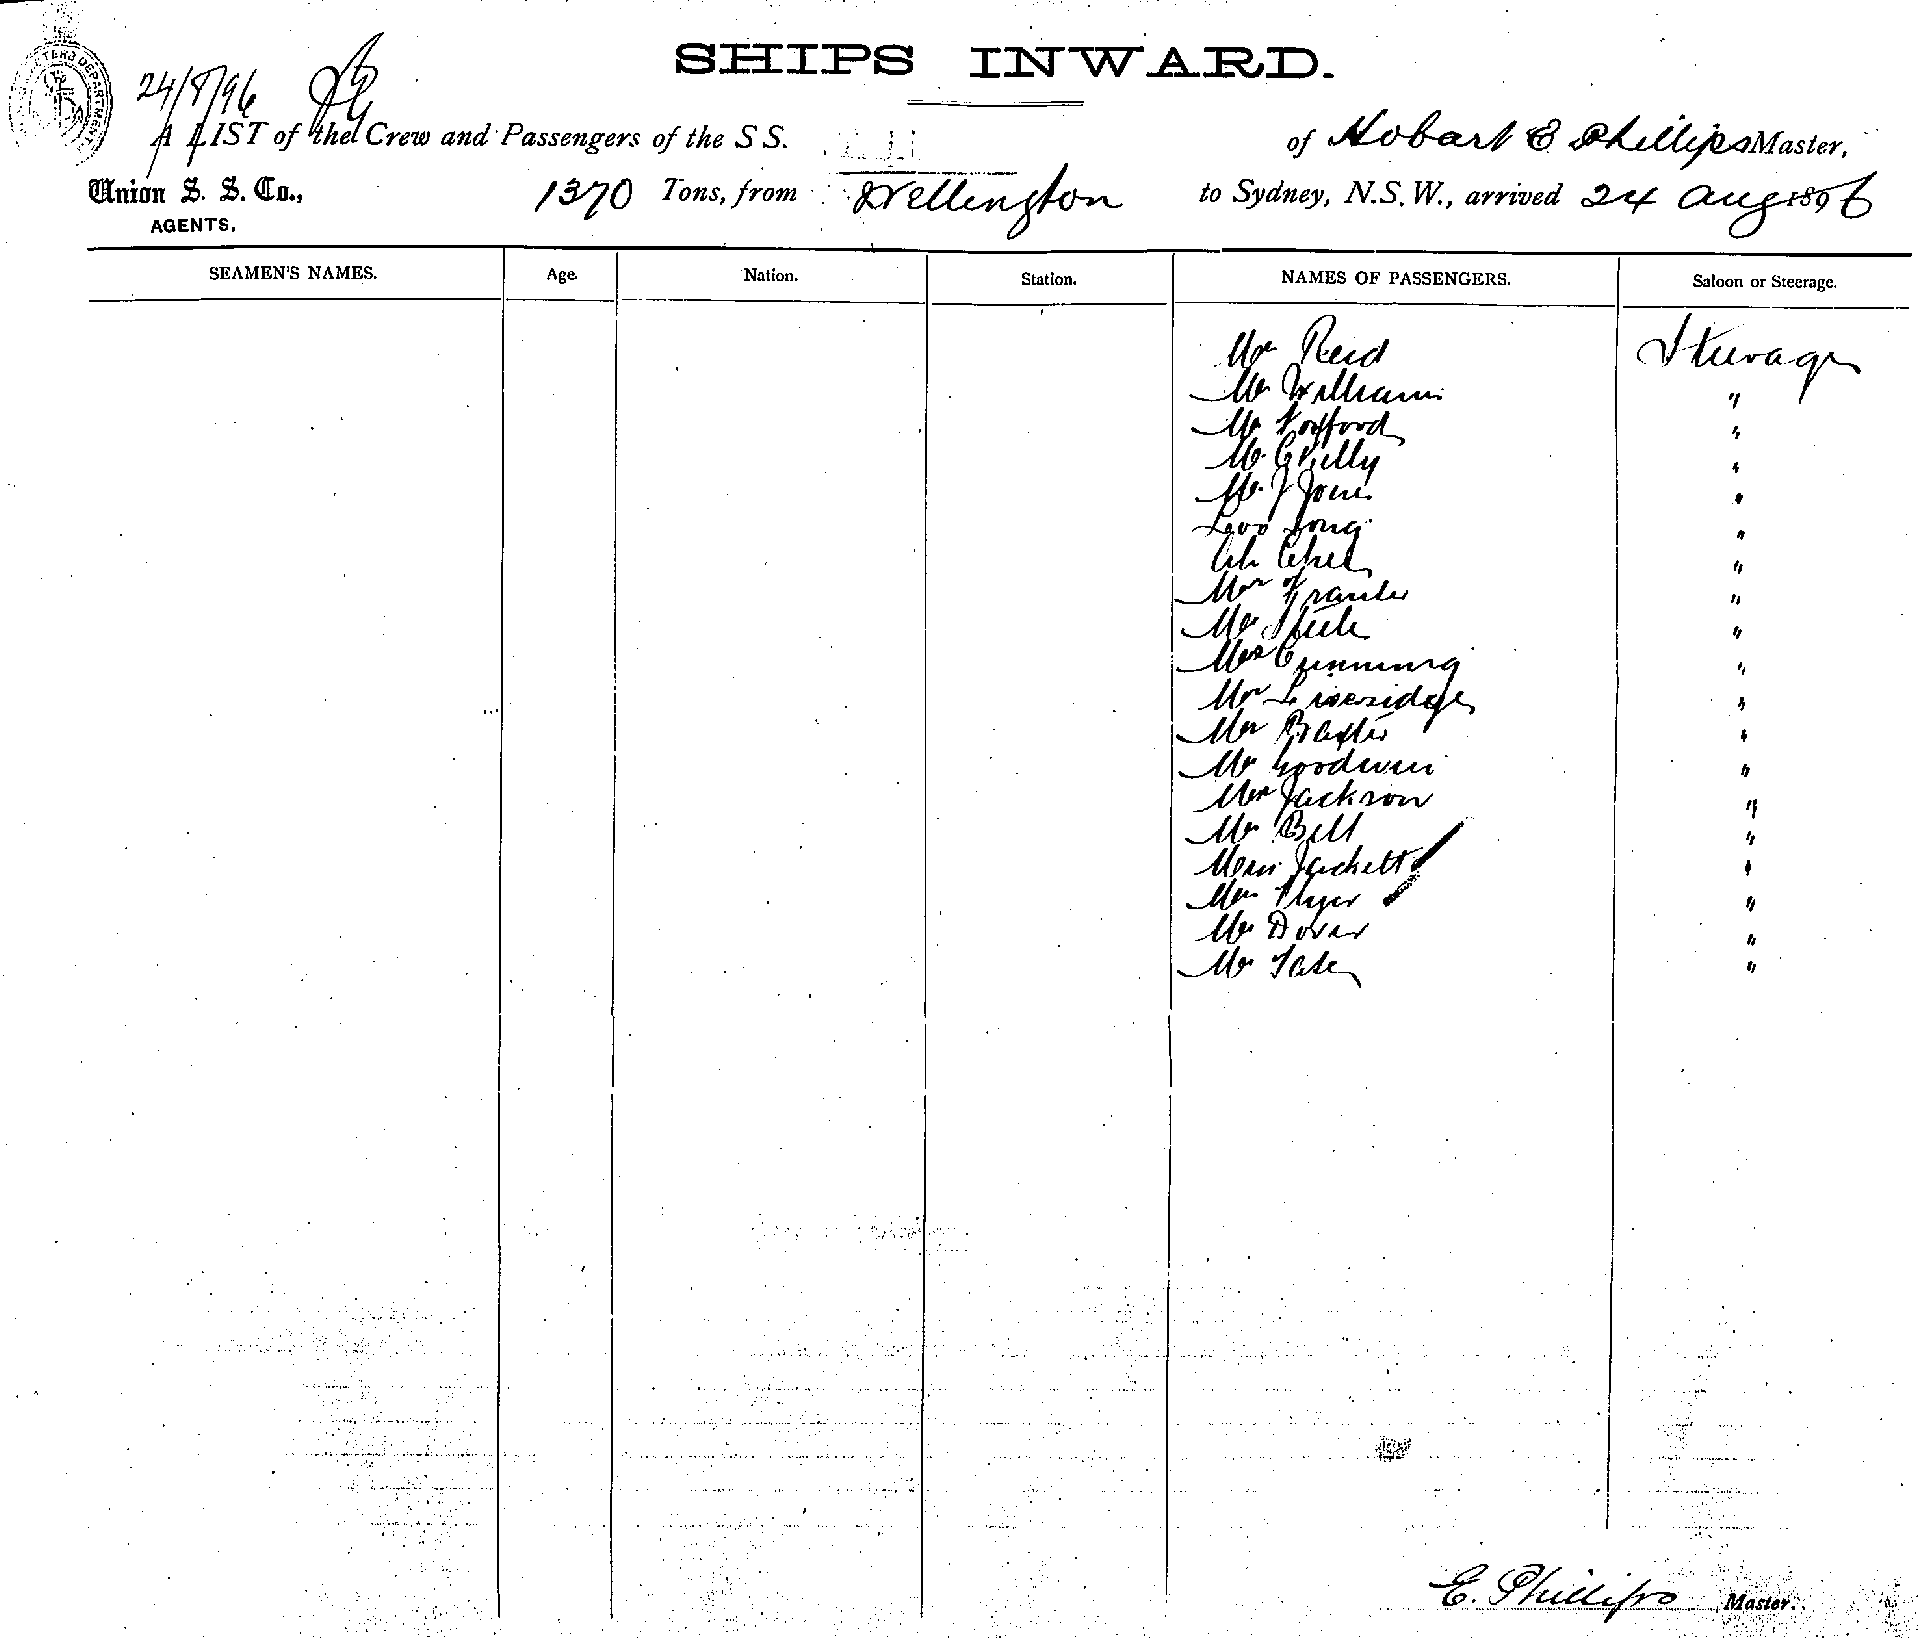 SHIPS INWARD.
24/8/96
A LIST of the Crew and Passengers of the S S. of Hobart E Phillips Master,
Union S. S. Co., 1370 Tons, from Wellington to Sydney, N.S.W., arrived 24 Aug 1896
AGENTS.
SEAMEN'S NAMES. Age. Nation. Station. NAMES OF PASSENGERS. Saloon or Steerage.
Mr Reid Steerage
Mr Williams "
Mr "
Mr "
Mr J Jones "
Long "
Ah "
"
Mr Steele "
"
Mr Liversidge "
Mr Baxter "
Mr Goodwin "
Mrs Jackson "
Mr Bell "
Jackett "
"
Mr Dover "
Mr Tate "
E. Phillips Master.